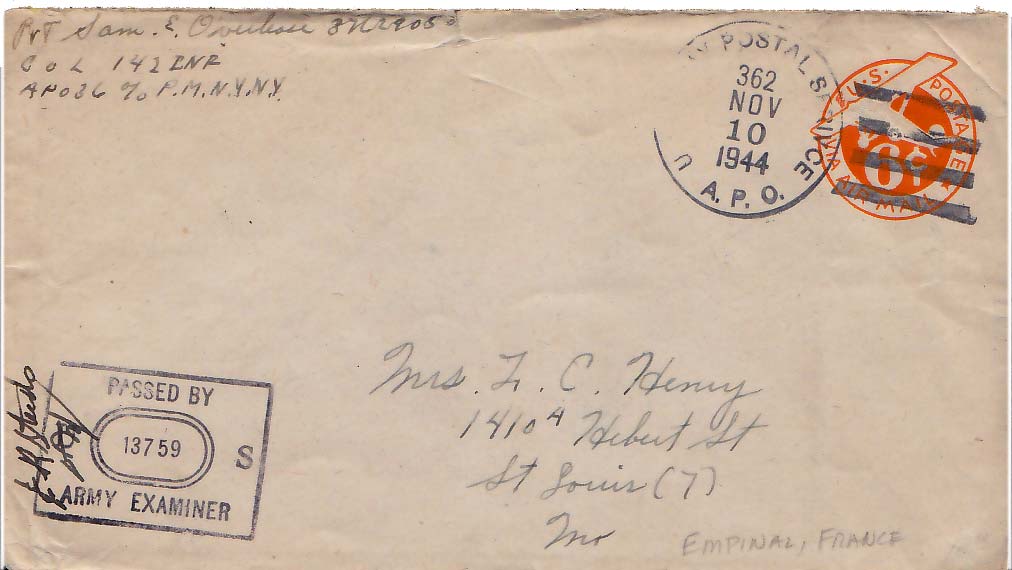 Pvt Sam. E.
Co L 142 INF
APO 36 % P.M. N.Y. N.Y.
POSTAL SERVICE
362
NOV
10
1944
A.P.O.
U.S. POSTAGE
6¢
VIA AIR MAIL
Mrs. L. C. Henry
1410 A Hebert St
St Louis (7)
Mo
PASSED BY
13759
S
ARMY EXAMINER
EMPINAL, FRANCE